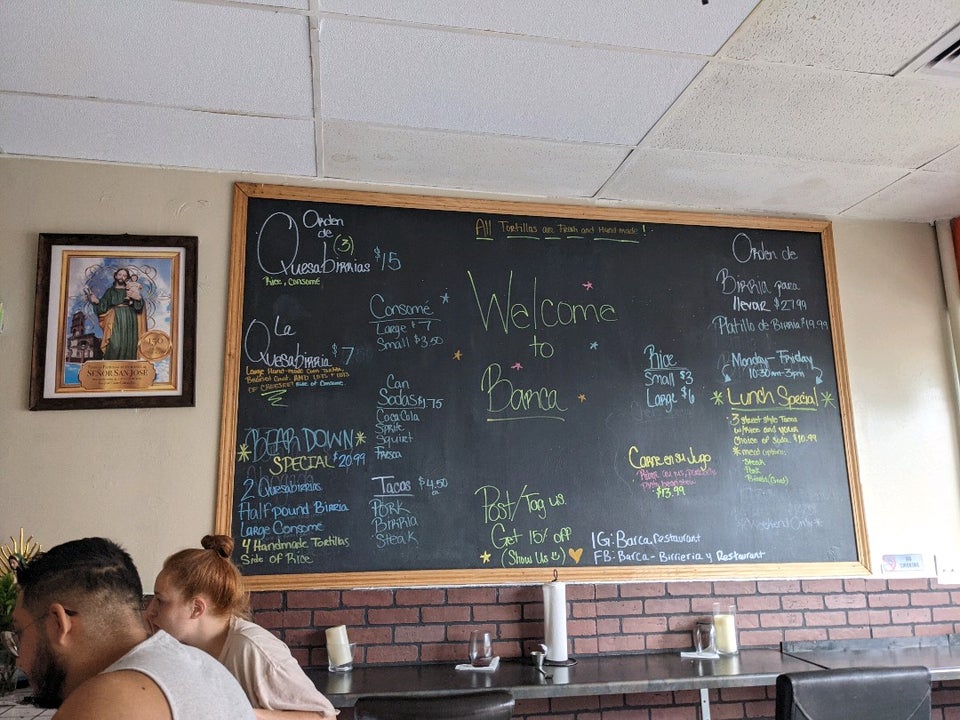 All Tortillas are Fresh and Handmade!
Orden
de
(3)
Quesabirrias $15
Rice, Consomé
La
Quesabirria $7
Large Hand-made Corn Tortilla,
AND lots & lots
OF CHEESE!! Side of Consome
BEAR DOWN
SPECIAL $20.99
2 Quesabirrias
Half pound Birria
Large Consome
4 Handmade Tortillas
Side of Rice
Consomé
Large $7
Small $3.50
Can
Sodas $1.75
Coca Cola
Sprite
Squirt
Fresca
Tacos $4.50
Pork
Birria
Steak
Welcome
to
Barca
Post/Tag us
Get 15% off
(Show Us)
IG: Barca.restaurant
FB: Barca - Birrieria y Restaurant
Rice
Small $3
Large $6
Carne en su Jugo
$13.99
Orden de
Birria para
llevar $27.99
Platillo de Birria $19.99
Monday - Friday
10:30am-3pm
Lunch Special
3 street style Tacos
w/Rice and your
Choice of Soda $10.99
*meat options
Steak
Pork
Birria (Goat)
SEÑOR SAN JOSE
NO
SMOKING